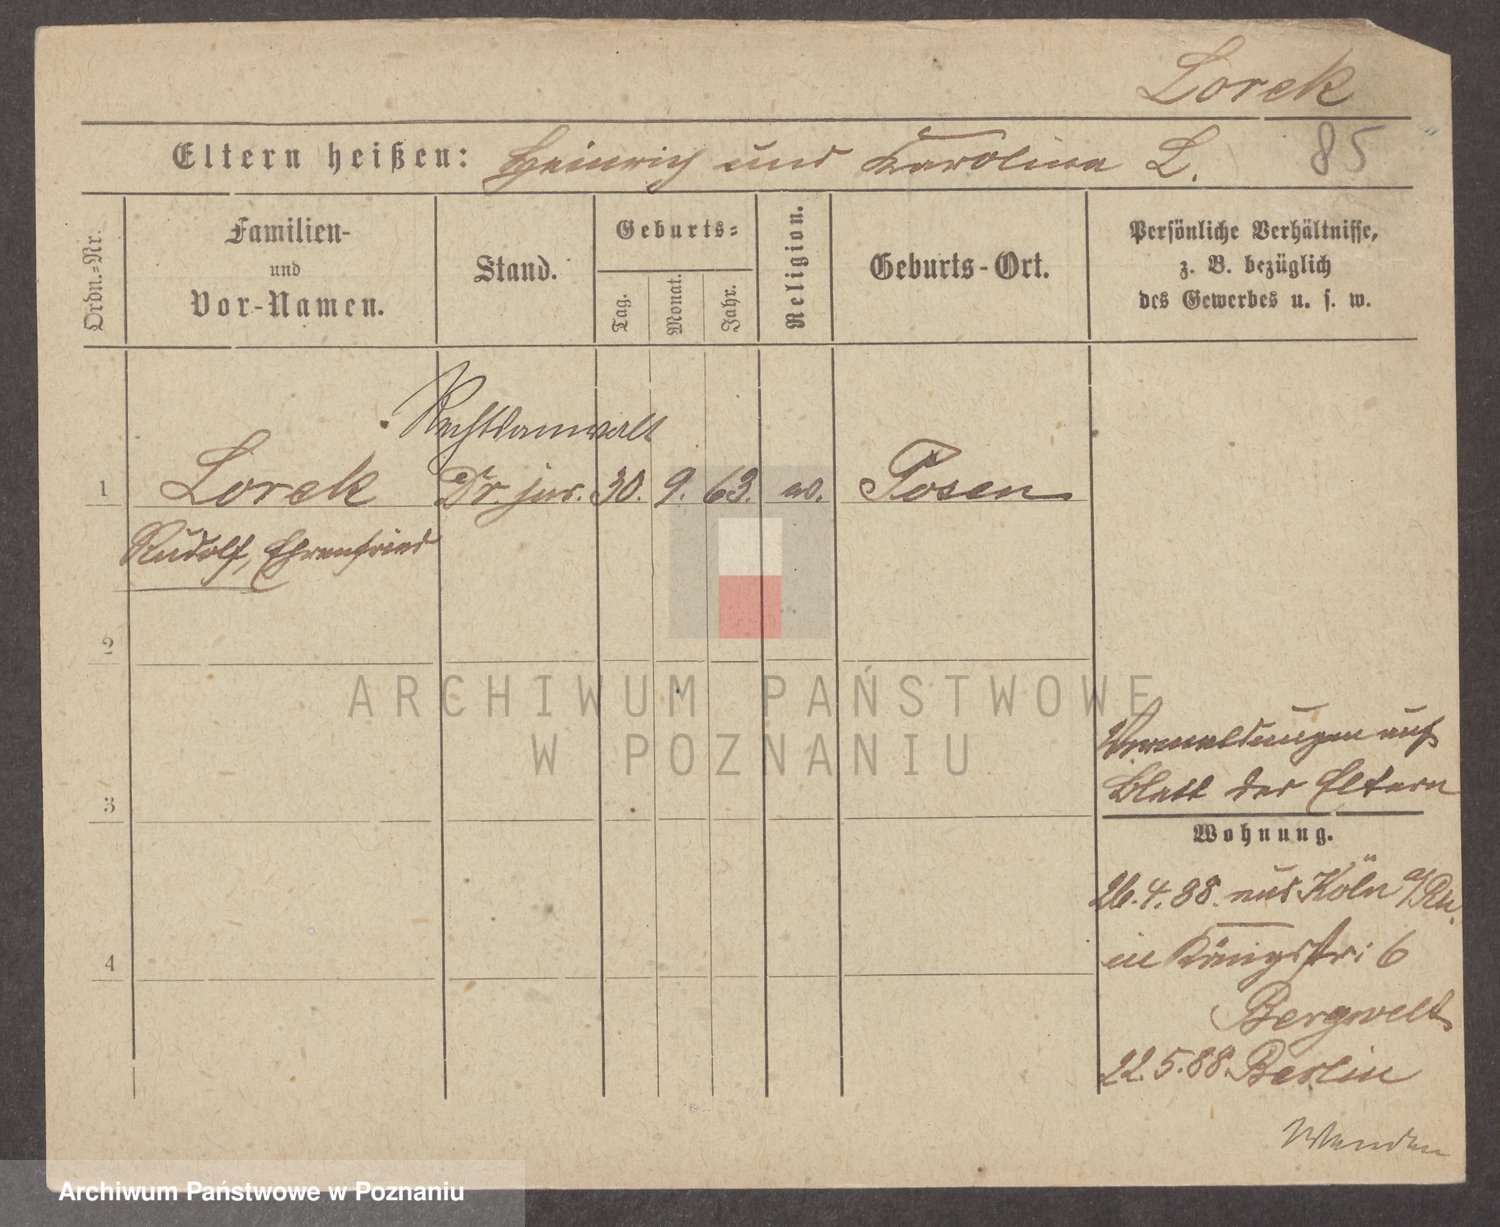 Lorek
85
Eltern heißen: Heinrich und Karolina L.
Ordn.-Nr.
Familien-
und
Vor-Namen.
Stand.
Geburts-
Tag.
Monat.
Jahr.
Religion.
Geburts-Ort.
Persönliche Verhältnisse,
z. B. bezüglich
des Gewerbes u. s. w.
Rechtsanwalt
1 Lorek Dr. jur. 30. 9. 63. ev. Posen
Rudolf, Ehrenfried
2
3
4
ARCHIWUM PAŃSTWOWE
W POZNANIU
Vermeldungen auf
Blatt der Eltern
Wohnung.
26.4.88. aus Köln a/Rh.
in Königsstr: 6
22.5.88. Berlin
Wenden
Archiwum Państwowe w Poznaniu